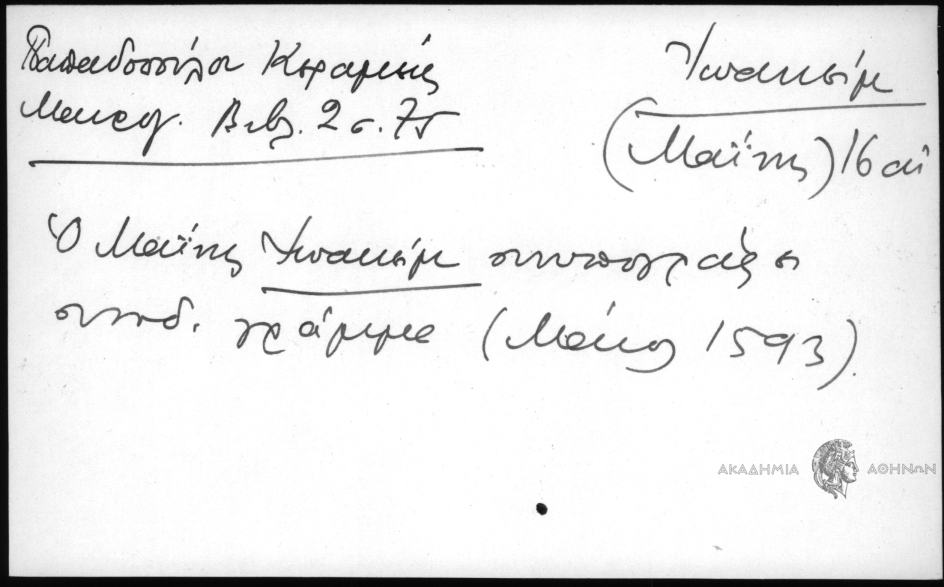 Παπαδοπούλου Κεραμεύς
Μαυρογ. Βιβλ. 2 σ. 75
Ἰωακεὶμ
(Μαΐνης) 16 αἰ
Ὁ Μαΐνης Ἰωακεὶμ συνυπογράφει
συνοδ. γράμμα (Μάιος 1593).
ΑΚΑΔΗΜΙΑ ΑΘΗΝΩΝ